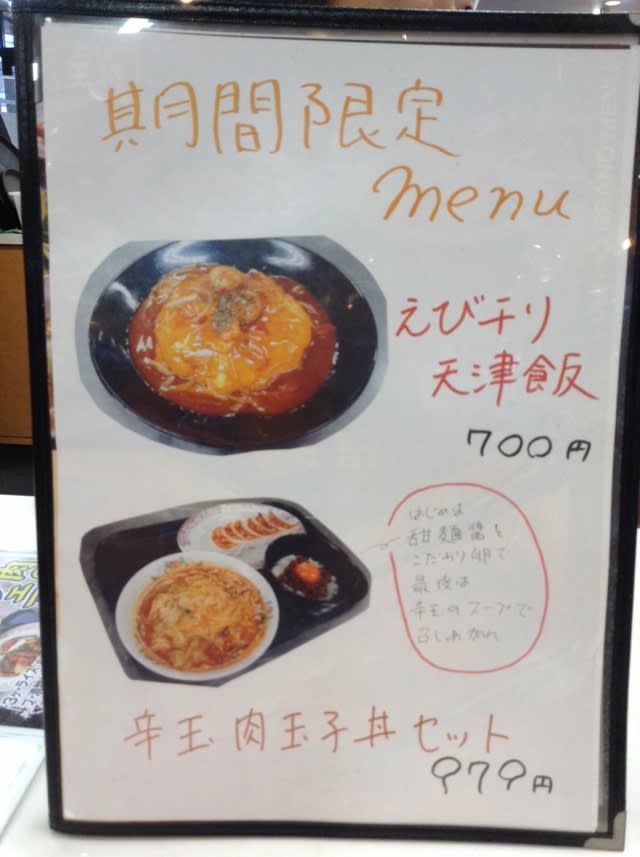 期間限定
menu
えびチリ
天津飯
700円
はじめは
甜麺醤と
こだわり卵で
最後は
辛玉のスープで
召しあがれ
辛玉肉玉子丼セット
979円